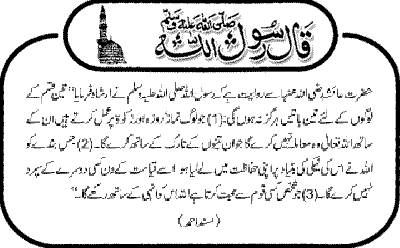 قال رسول اللہ صلی اللہ علیہ وسلم
حضرت عائشہ رضی اللہ عنہا سے روایت ہے کہ رسول اللہ صلی اللہ علیہ وسلم نے ارشاد فرمایا ”تین قسم کے
لوگوں کے لئے تین باتیں ہرگز نہ ہوں گی: (1) جو لوگ نماز، روزہ اور زکوٰۃ پر عمل کرتے ہیں ان کے
ساتھ اللہ تعالیٰ وہ معاملہ نہیں کرے گا جو ان تینوں کے تارک کے ساتھ کرے گا۔ (2) جس بندے کو
اللہ نے اس کی نیکی کی بنیاد پر اپنی حفاظت میں لے لیا ہو اسے قیامت کے دن کسی دوسرے کے سپرد
نہیں کرے گا۔ (3) جو شخص کسی قوم سے محبت کرتا ہے اللہ اس کو انہی کے ساتھ رکھے گا۔“
(مسند احمد)